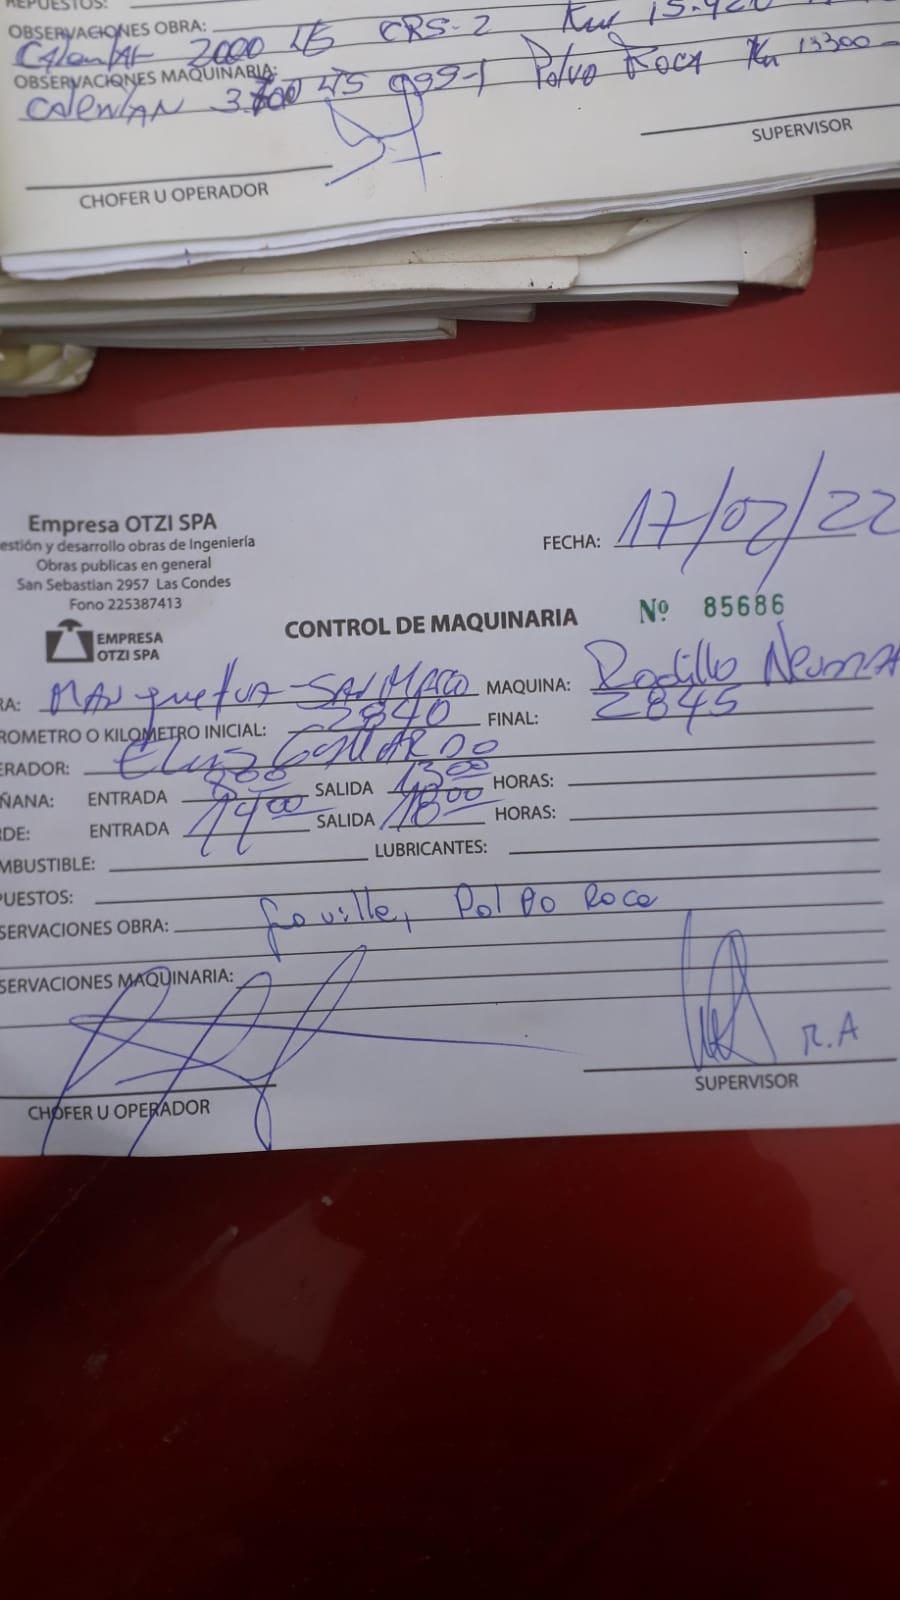 REPUESTOS:
OBSERVACIONES OBRA:
Calentar 2000 LTS CRS-2 Km 15.420
OBSERVACIONES MAQUINARIA:
Calentan LTS Polvo Roca Km 13300-
CHOFER U OPERADOR SUPERVISOR
Empresa OTZI SPA
estión y desarrollo obras de Ingeniería
Obras publicas en general
San Sebastian 2957 Las Condes
Fono 225387413
FECHA: 17/02/22
EMPRESA
OTZI SPA
CONTROL DE MAQUINARIA Nº 85686
RA: MAQUINA: Rodillo Neuma
ROMETRO O KILOMETRO INICIAL: 2840 FINAL: 2845
ERADOR: GALLARDO
ÑANA: ENTRADA 800 SALIDA 1300 HORAS:
RDE: ENTRADA 1400 SALIDA 1800 HORAS:
MBUSTIBLE: LUBRICANTES:
PUESTOS:
SERVACIONES OBRA: Gravilla, Polvo Roca
SERVACIONES MAQUINARIA:
R.A
CHOFER U OPERADOR SUPERVISOR